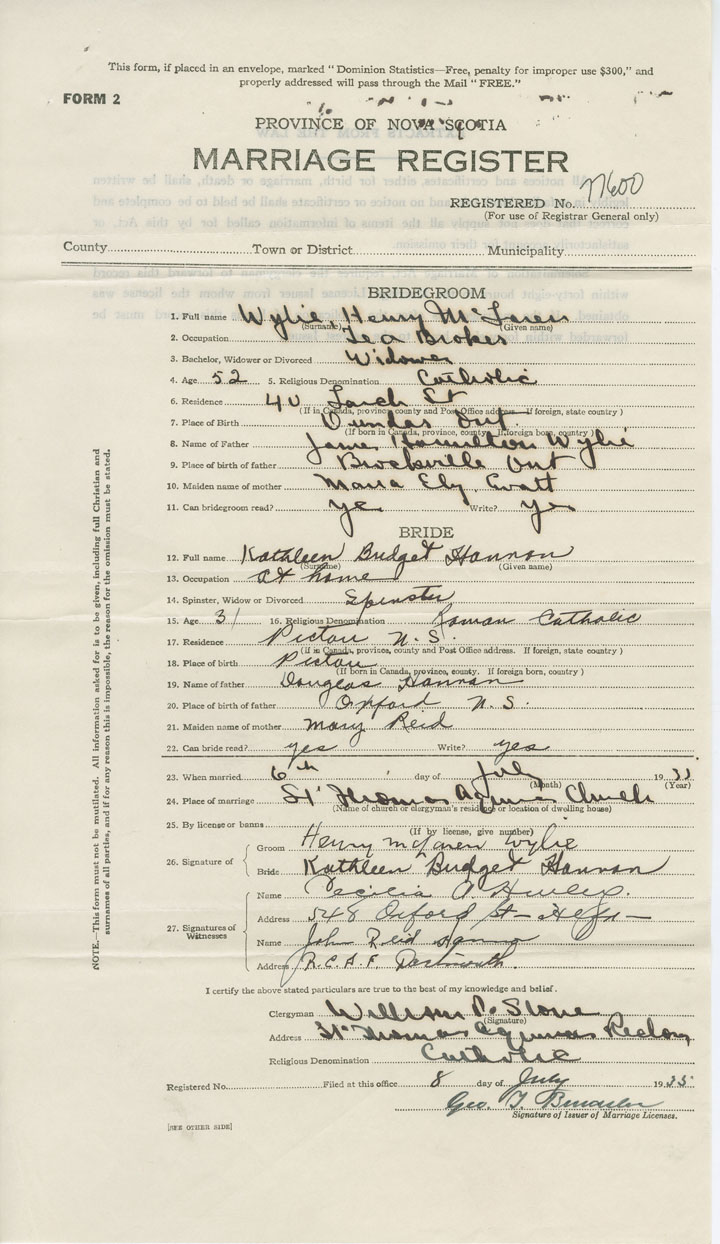 This form, if placed in an envelope, marked "Dominion Statistics—Free, penalty for improper use $300," and
properly addressed will pass through the Mail "FREE."
FORM 2
PROVINCE OF NOVA SCOTIA
MARRIAGE REGISTER
REGISTERED No.
(For use of Registrar General only)
County Town or District Municipality
BRIDEGROOM
1. Full name Wylie, Henry McLaren
(Surname) (Given name)
2. Occupation Tea Broker
3. Bachelor, Widower or Divorced Widower
4. Age 52 5. Religious Denomination Catholic
6. Residence 40 Larch St
(If in Canada, province, county and Post Office address. If foreign, state country)
7. Place of Birth Dundas Ont.
(If born in Canada, province, county. If foreign born, country)
8. Name of Father James Hamilton Wylie
9. Place of birth of father Brockville Ont
10. Maiden name of mother Maria
11. Can bridegroom read? yes Write? yes
BRIDE
12. Full name Kathleen Budget Hannon
(Surname) (Given name)
13. Occupation at home
14. Spinster, Widow or Divorced Spinster
15. Age 31 16. Religious Denomination Roman Catholic
17. Residence Pictou N.S.
(If in Canada, province, county and Post Office address. If foreign, state country)
18. Place of birth Pictou
(If born in Canada, province, county. If foreign born, country)
19. Name of father Douglas Hannon
20. Place of birth of father Oxford N.S.
21. Maiden name of mother Mary Reid
22. Can bride read? yes Write? yes
23. When married 6th day of July 19
(Month) (Year)
24. Place of marriage St Thomas Aquinas Church
(Name of church or clergyman's residence or location of dwelling house)
25. By license or banns
(If by license, give number)
26. Signature of
Groom Henry McLaren Wylie
Bride Kathleen Budget Hannon
27. Signatures of Witnesses
Name Cecilia A.
Address 548 Oxford St - Hfx -
Name John Reid
Address R.C.A.F Dartmouth.
I certify the above stated particulars are true to the best of my knowledge and belief.
Clergyman William P. Stone
(Signature)
Address St Thomas Aquinas Rectory
Religious Denomination Catholic
Registered No. Filed at this office 8 day of July 1935
Geo. T.
Signature of Issuer of Marriage Licenses.
[SEE OTHER SIDE]
NOTE.—This form must not be mutilated. All information asked for is to be given, including full Christian and
surnames of all parties, and if for any reason this is impossible, the reason for the omission must be stated.